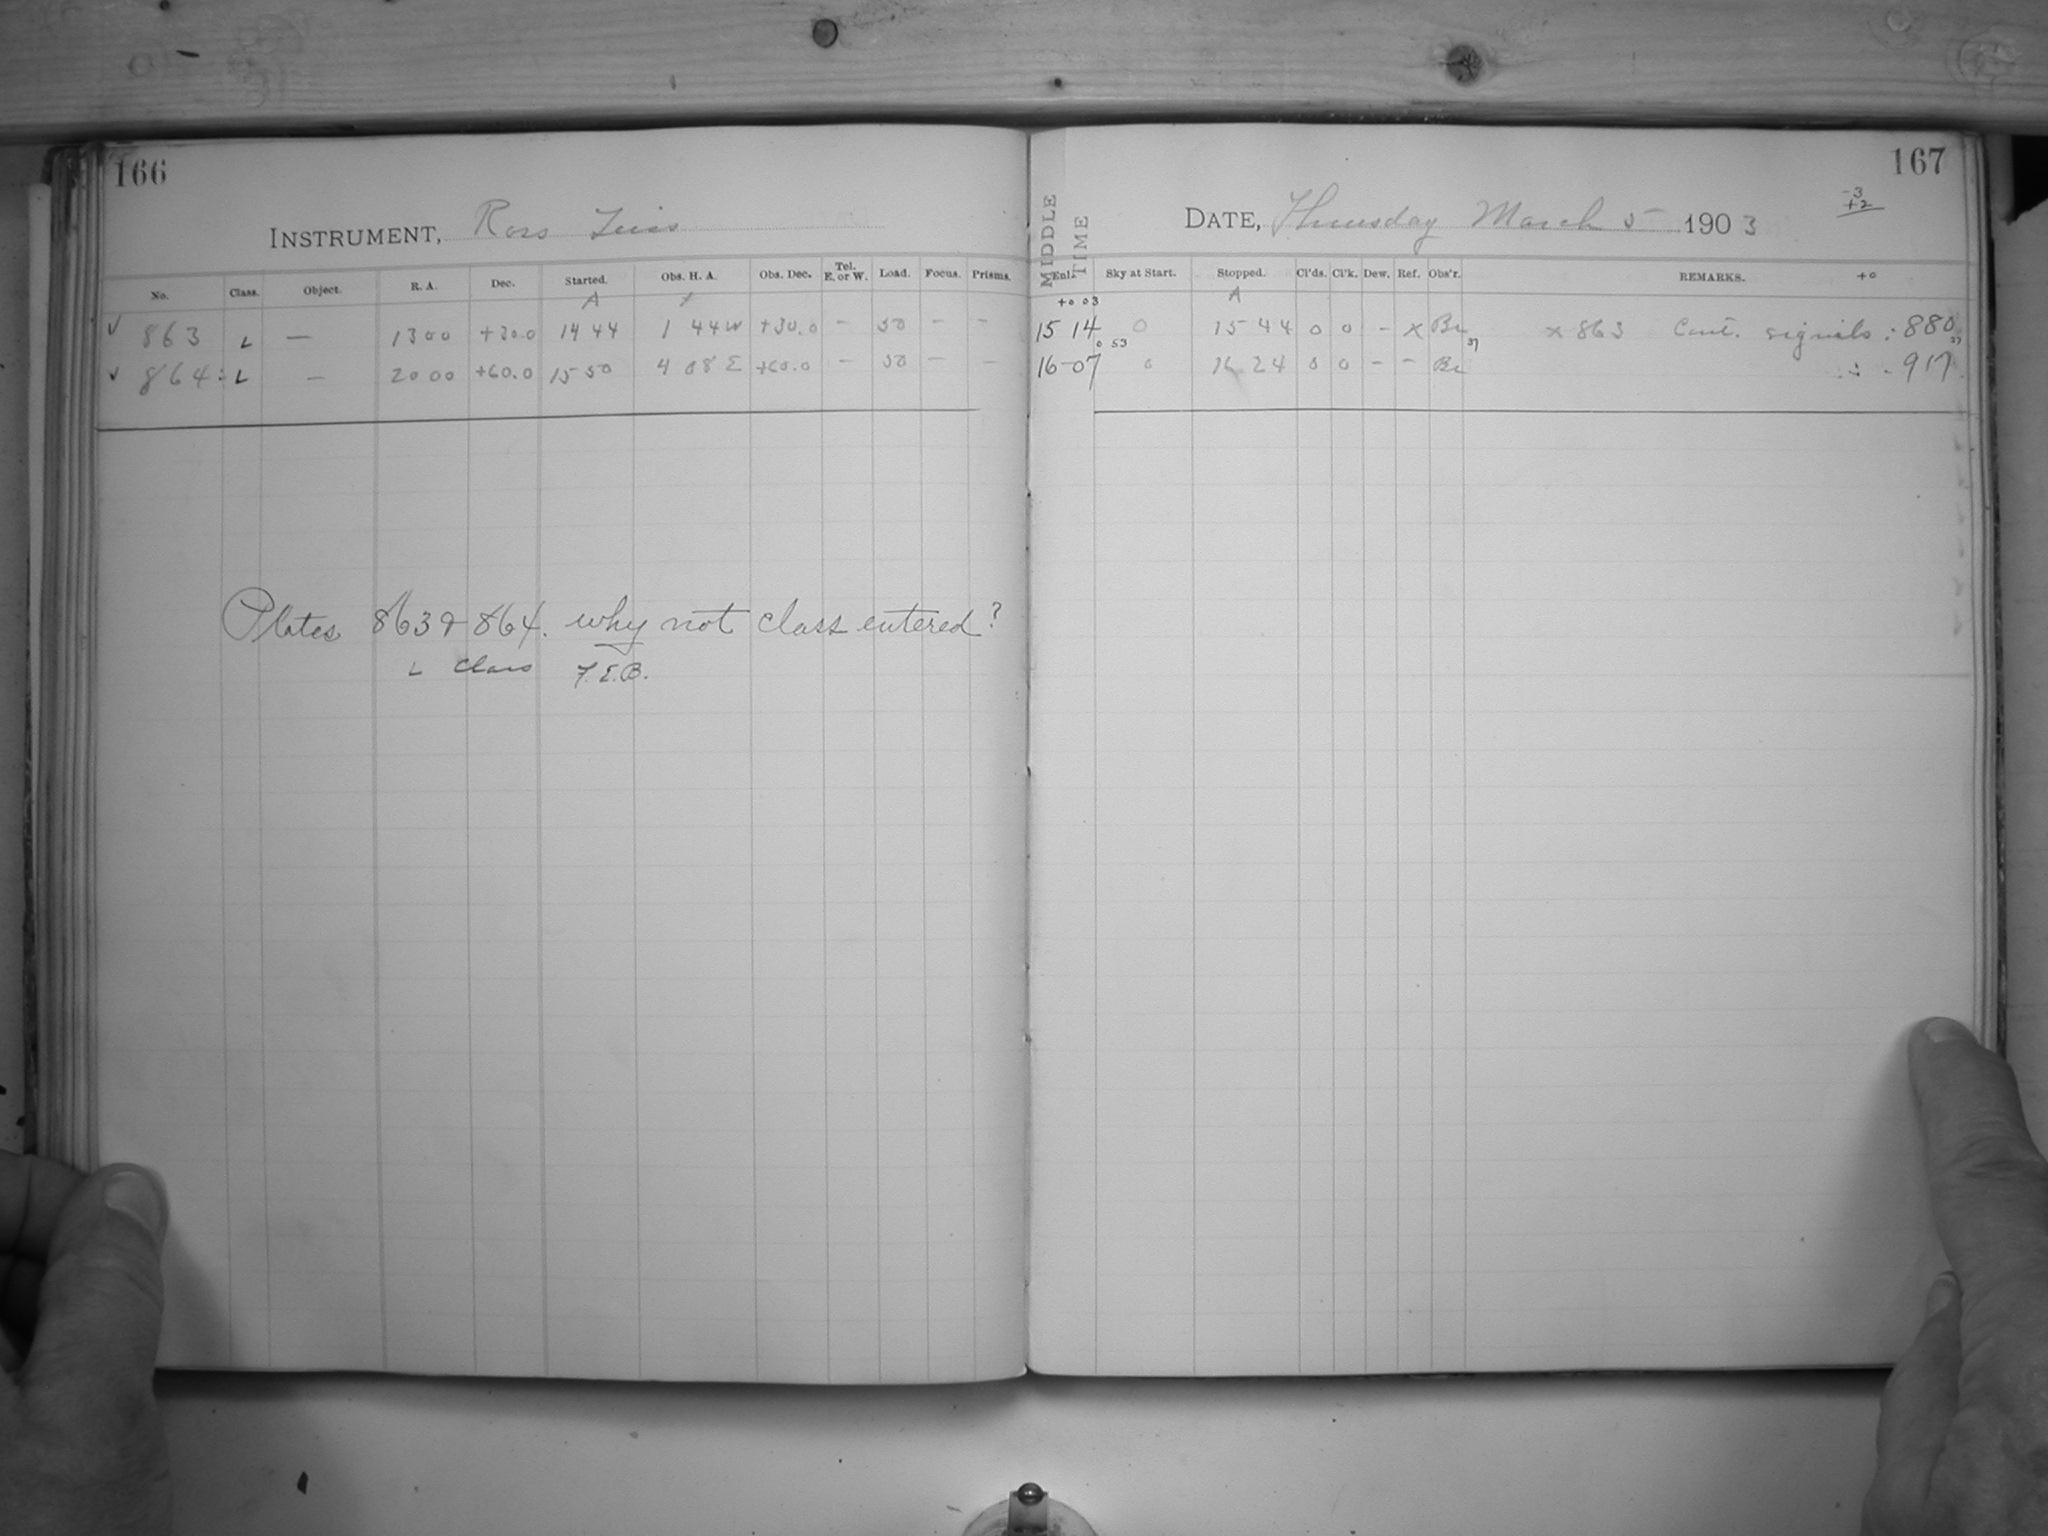 166
INSTRUMENT, Ross Zeiss
No. Class. Object. R. A. Dec. Started. Obs. H. A. Obs. Dec. Tel. E. or W. Load. Focus. Prisms.
A
✓ 863 L — 13 00 +30.0 14 44 1 44 W +30.0 – 50 – –
✓ 864 L — 20 00 +60.0 15 50 4 08 E +60.0 – 50 – –
Plates 863 & 864. why not class entered?
L Class F.E.B.
167
-3
+2
MIDDLE TIME
DATE, Thursday March 5 1903
Enl. Sky at Start. Stopped. Cl'ds. Cl'k. Dew. Ref. Obs'r. REMARKS. +0
+0 03 A
15 14 0 15 44 0 0 – x Br x 863 Cont. signals. 880
0 53 37 37
16-07 0 16 24 0 0 – – Br 917